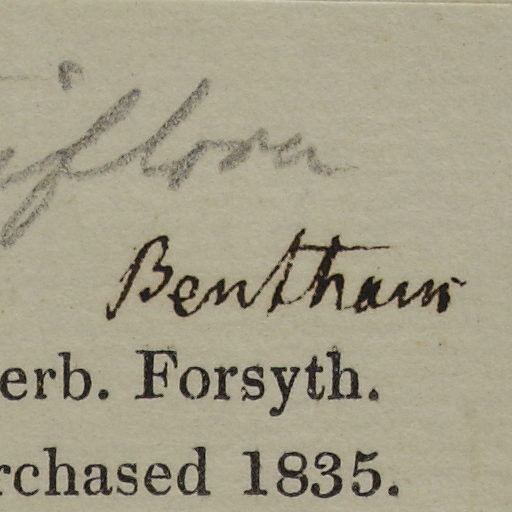 iflora
Bentham
erb. Forsyth.
rchased 1835.